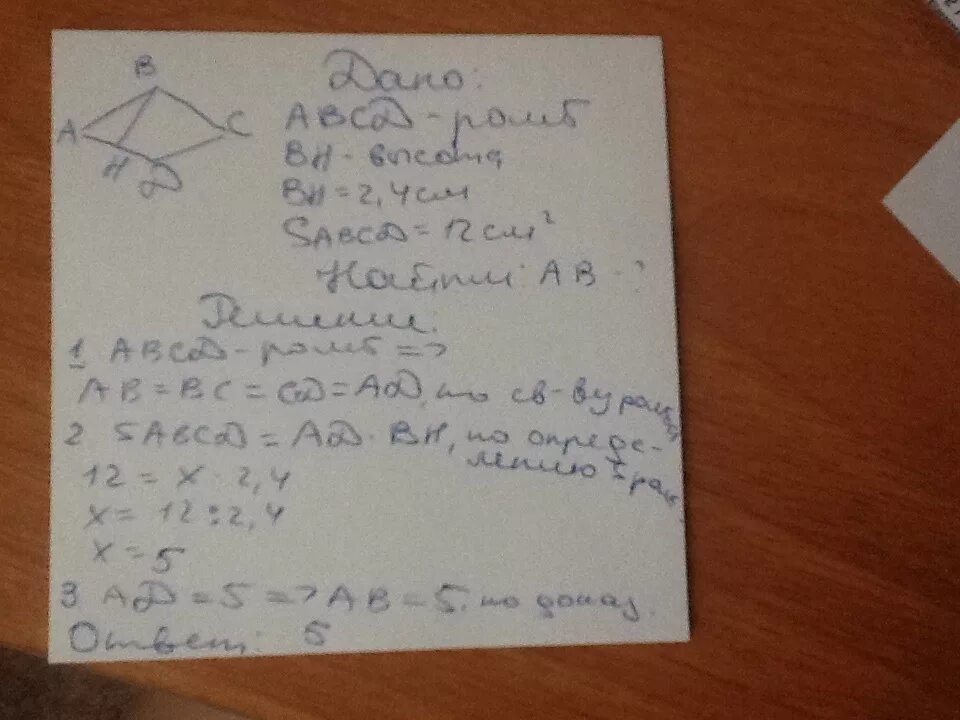 B
A
C
H
D
Дано:
ABCD - ромб
BH - высота
BH = 2,4 см
SABCD = 12 см²
Найти: AB - ?
Решение:
1 ABCD - ромб =>
AB = BC = CD = AD, по св-ву ромба
2 SABCD = AD · BH, по опреде-
лению S
12 = x · 2,4
x = 12 : 2,4
x = 5
3 AD = 5 => AB = 5. по доказ.
Ответ: 5